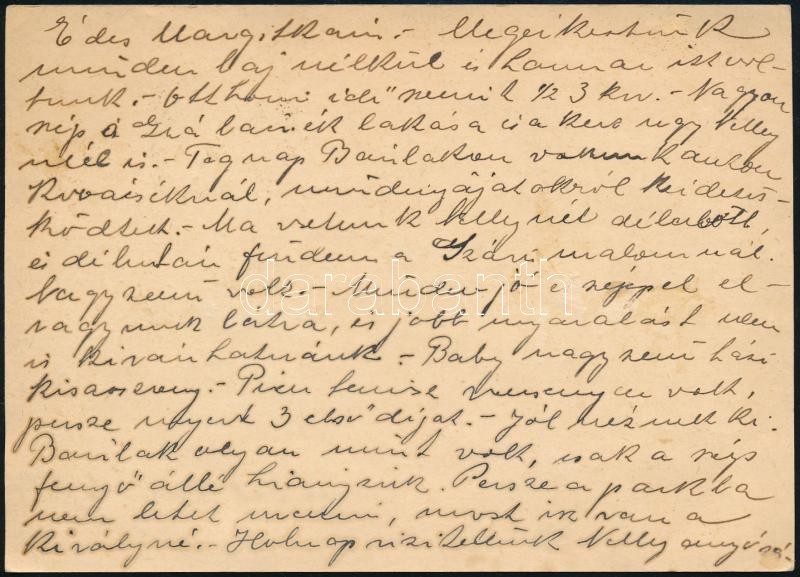 Édes Margitkám. - Megérkeztünk
minden baj nélkül és hamar itt vol-
tunk. - Otthoni idő szerint 1/2 3 kor. - Nagyon
szép a lakása és a kert úgy Nelly
nél is. - Tegnap Barlakon voltunk
mindnyájatokról kérdezős-
ködtek. - Ma voltunk Nellynél délelőtt,
és délután fürdeni a malomnál.
Nagyszerű volt. - Minden jó és széppel el-
vagyunk látva, és jobb nyaralást nem
is kívánhatnánk. - Baby nagyszerű házi
kisasszony. - Pixi tenisz versenyen volt,
persze nyert 3 első díjat. - Jól néznek ki.
Barlak olyan mint volt, csak a szép
fenyő álló hiányzik. Persze a parkba
nem lehet menni, most itt van a
királyné. - Holnap Nelly anyósá-
darabanth